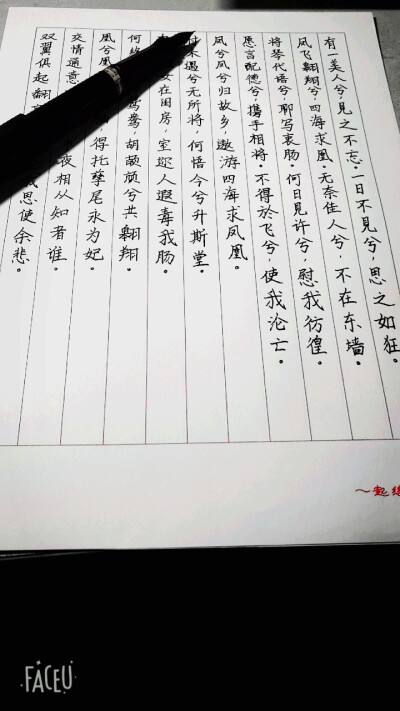 有一美人兮，見之不忘。一日不見兮，思之如狂。
凤飞翱翔兮，四海求凰。无奈佳人兮，不在东墙。
将琴代语兮，聊写衷肠。何日見许兮，慰我彷徨。
愿言配德兮，携手相将。不得於飞兮，使我沦亡。
凤兮凤兮归故乡，遨游四海求凤凰。
未遇兮无所将，何悟今兮升斯堂。
女在闺房，室迩人遐毒我肠
何缘鸳鸯，胡颉颃兮共翱翔。
凰兮凰得托孳尾永为妃。
交情通意夜相从知者谁。
双翼俱起翻感思使余悲。
一起练
FACEU